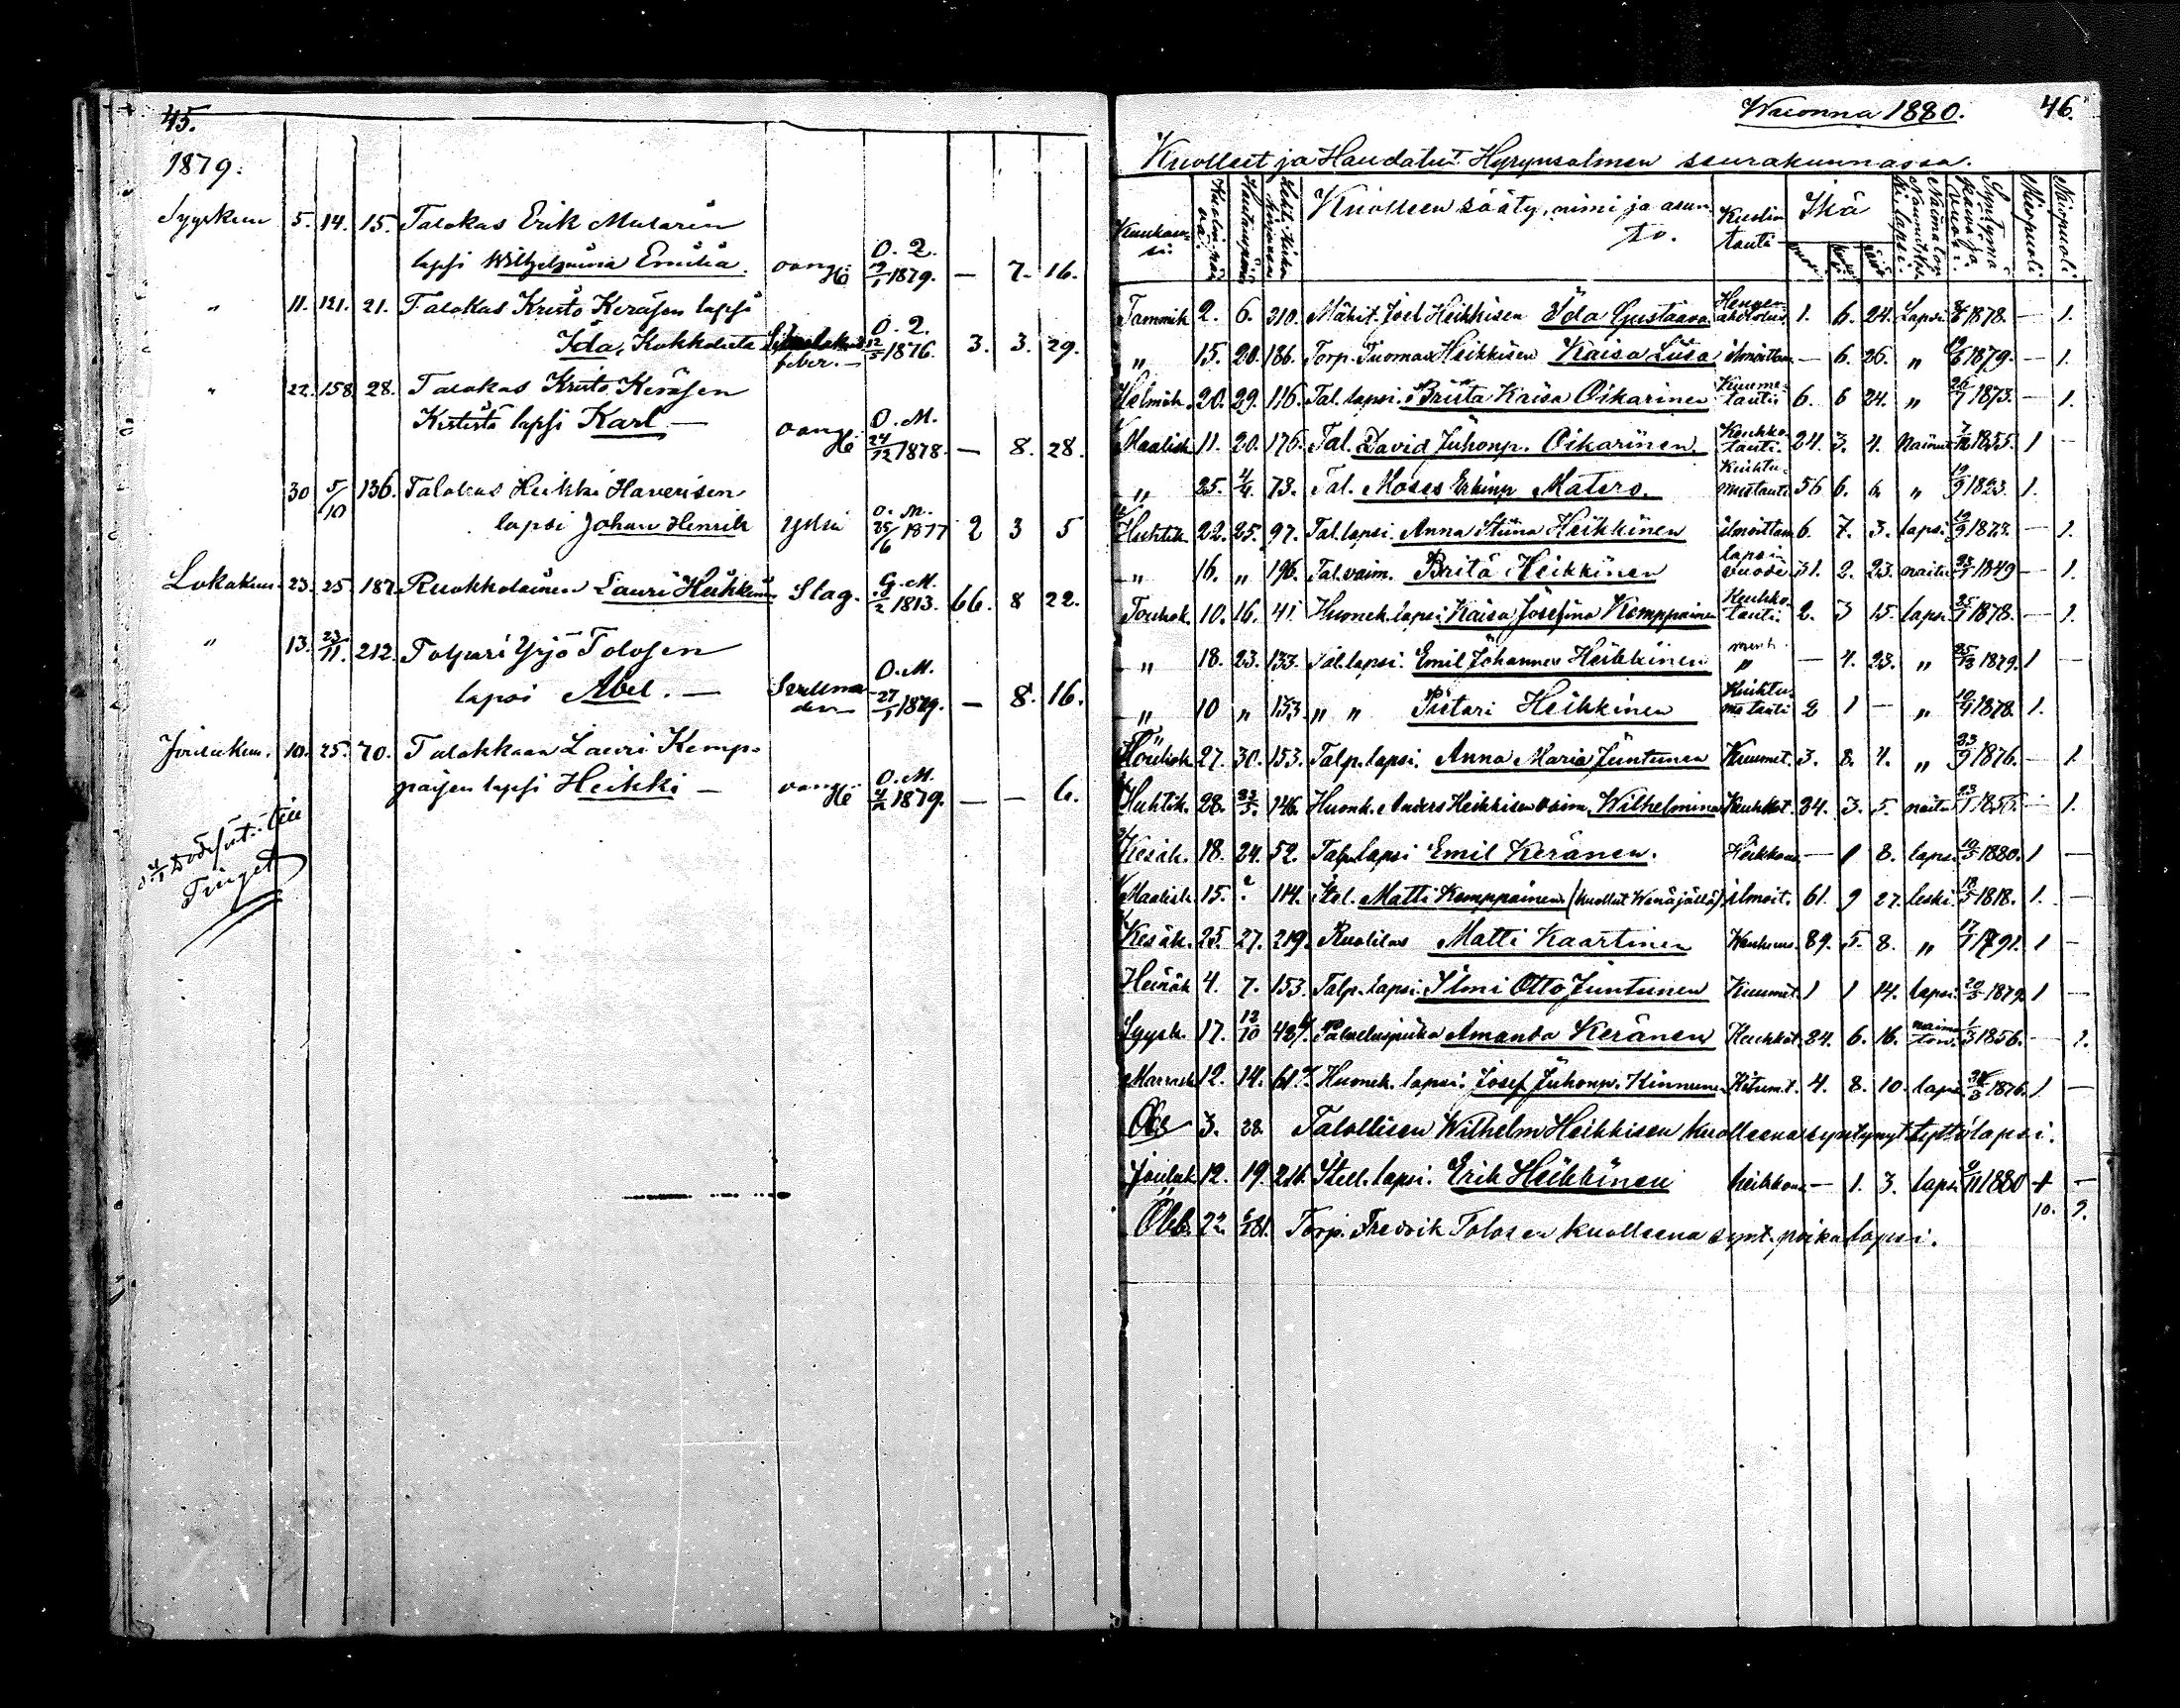 45.
1879.
Syyskuu 5. 14. 15. Talokas Erik Mularin
lapsi Wilhelmina Emilia. O. 2. 1879. — 7. 16.
" 11. 121. 21. Talokas Kristo Keräsen lapsi
Ida, Kokkolista feber. — O. 2. 12/5 1876. 3. 3. 29.
" 22. 158. 28. Talokas Kristo Keräsen
lapsi Karl — O. M. 24/12 1878. — 8. 28.
30 5/10 136. Talokas Heikki Haverisen
lapsi Johan Henrik O. M. 25/6 1877 2 3 5
Lokakuu 23. 25. 187. Ruokkolainen Lauri Heikkinen Slag. G. M. 1813. 66. 8 22.
" 13. 23/11. 212. Torpari Yrjö Tolosen
lapsi Abel. — O. M. 27/1 1879. — 8. 16.
Joulukuu. 10. 25. 70. Talokkaan Lauri Kemp-
paisen lapsi Heikki — O. M. 4/12 1879. — — 6.
Tinget
Wuonna 1880. 46.
Kuolleet ja Haudatut Hyrynsalmen seurakunnassa.
Kuukausi Kuolinpäivä Hautauspäivä Kuolleen sääty, nimi ja asunto. Kuolintauti Ikä Miespuoli Naispuoli
Tammik. 2. 6. 310. Mäkit. Joel Heikkisen Ida Gustaava Hengenahdistus 1. 6. 24. Lapsi 8/6 1878. — 1.
" 15. 20. 186. Torp. Tuomas Heikkisen Kaisa Liisa ilmoittam. — 6. 26. " 19/6 1879. — 1.
Helmik. 20. 29. 116. Tal. lapsi. Briita Kaisa Oikarinen Kuumetauti 6. 6 24. " 26/7 1873. — 1.
Maalisk. 11. 20. 176. Tal. David Juhonp. Oikarinen. Keuhkotauti. 24. 3. 4. Nainut 7/12 1855. 1 —
" 25. 4/4. 73. Tal. Moses Erkinp Matero. 56 6. 6. " 19/9 1823. 1.
Huhtik. 22. 25. 97. Tal. lapsi. Anna Stiina Heikkinen ilmoittam 6. 7. 3. lapsi 19/9 1873. — 1.
" 16. " 196. Tal. vaim. Brita Heikkinen lapsivuode. 31. 2. 23. naitu 23/1 1849 — 1.
Toukok. 10. 16. 41. Huonek. lapsi Kaisa Josefina Kemppainen Keuhkotauti. 2. 3 15. lapsi 25/1 1878. — 1.
" 18. 23. 133. Tal. lapsi. Emil Johannes Heikkinen " — 4. 23. " 25/12 1879. 1 —
" 10 " 153. " " Pietari Heikkinen 2 1 — " 10/4 1878. 1.
27. 30. 153. Talp. lapsi. Anna Maria Juntunen Kuumet. 3. 8. 4. " 23/9 1876. — 1.
Huhtik. 28. 146. Huonk. Anders Heikkisen vaim. Wilhelmina Keuhkot. 24. 3. 5. naitu — 1.
Kesäk. 18. 24. 52. Talp. lapsi Emil Keränen. — 1 8. lapsi. 10/5 1880. 1 —
Maalisk. 15. ? 114. Itel. Matti Kemppainen (kuollut Wenäjällä) ilmoit. 61. 9 27. leski. 18/5 1818. 1. —
Kesäk. 25. 27. 219. Ruotilas Matti Kaartinen Wanhuus. 89. 5. 8. " 17/1 1791. 1 —
Heinäk 4. 7. 153. Talp. lapsi. Ilmi Otto Juntunen Kuumet. 1 1 14. lapsi. 20/5 1879. 1 —
Syysk. 17. 12/10 Palveluspiika Amanda Keränen Keuhkot. 24. 6. 16. naimaton. 1/3 1856. — 1.
Marrask. 12. 14. Huonek. lapsi. Josef Juhonp. Kinnunen 4. 8. 10. lapsi 1876. 1 —
Obs 3. 28. Talollisen Wilhelm Heikkisen kuolleena syntynyt tyttölapsi.
Jouluk. 12. 19. 216. Itell. lapsi. Erik Heikkinen — 1. 3. lapsi 9/11 1880 1 —
10. 9.
Obs. 22. Torp. Fredrik Tolosen kuolleena synt. poikalapsi.